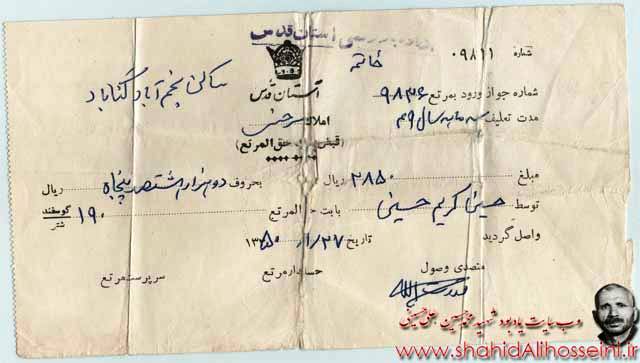 آستان قدس
شماره ۰۹۸۱۱
آستان قدس
ساکن نجم آباد گناباد
شماره جواز ورود بمرتع ۹۸۳۶
املاک سرخس
مدت تعلیف سه ماهه سال ۴۹
حق المرتع)
مبلغ ۲۸۵۰ ریال بحروف دو هزار هشتصد پنجاه ریال
توسط حسین کریم حسینی بابت حق المرتع ۱۹۰ گوسفند
شتر
واصل گردید تاریخ ۲۷/۱/۱۳۵۰
متصدی وصول حسابدار مرتع سرپرست مرتع
وب سایت یادبود شهید محمدحسین علی حسینی
www.shahidAlihosseini.ir